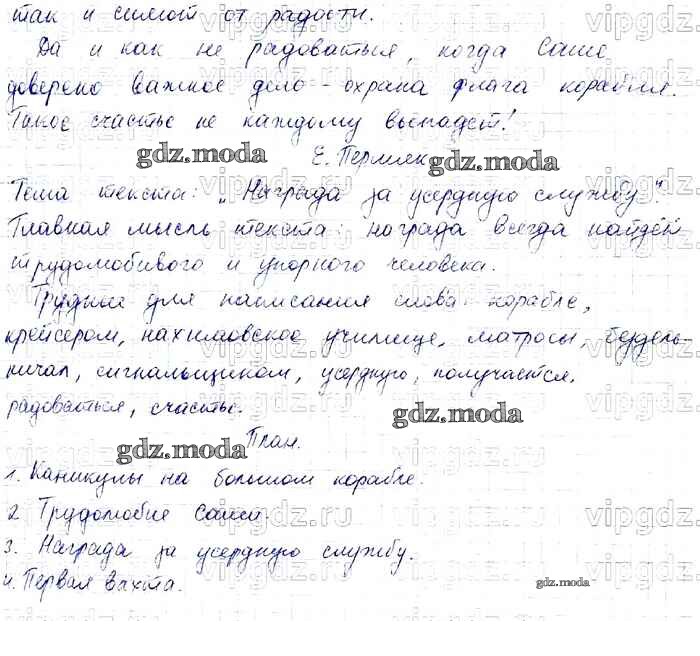 так и сияют от радости.
Да и как не радоваться, когда Саше
доверено важное дело - охрана флага корабля.
Такое счастье не каждому выпадет!
gdz.moda
Е. Пермяк
gdz.moda
Тема текста: „Награда за усердную службу".
Главная мысль текста: награда всегда найдёт
трудолюбивого и упорного человека.
Трудные для написания слова: корабле,
крейсером, нахимовское училище, матросы, бездель-
ничал, сигнальщиком, усердную, получается,
радоваться, счастье.
gdz.moda
gdz.moda
План.
1. Каникулы на большом корабле.
2 Трудолюбие Саши.
3. Награда за усердную службу.
4. Первая вахта.
gdz.moda